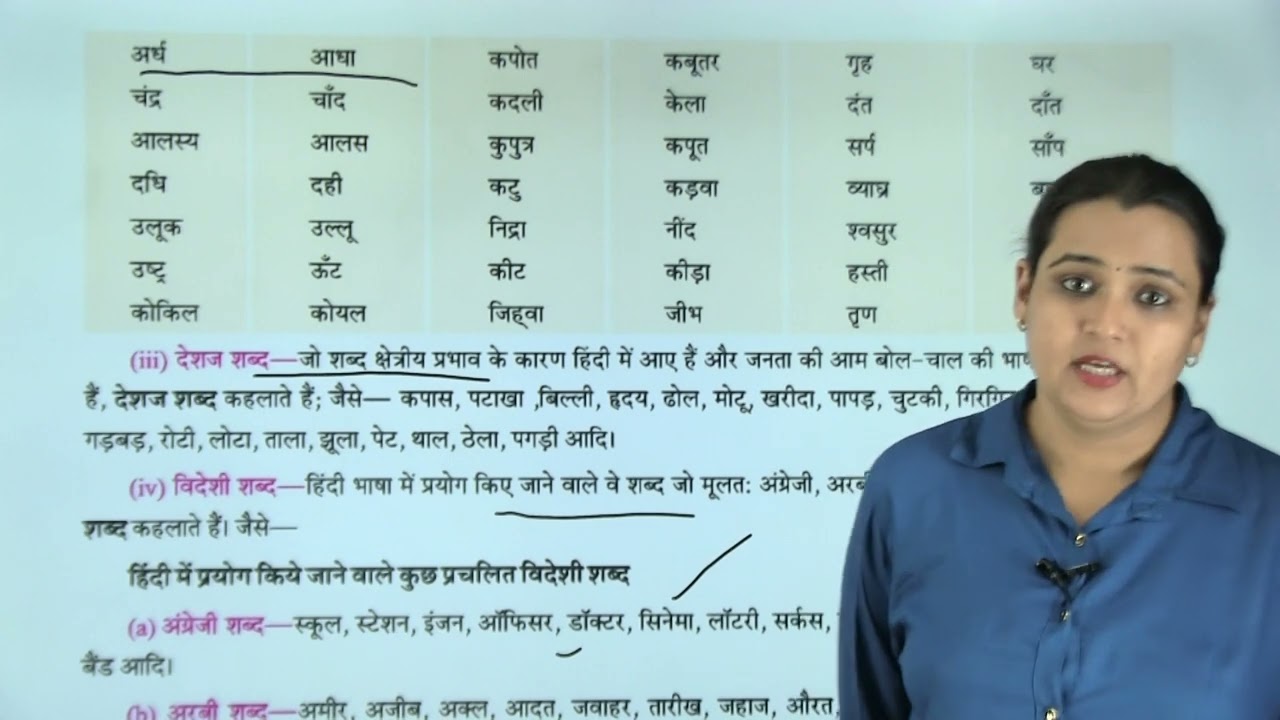 अर्ध आधा कपोत कबूतर गृह घर
चंद्र चाँद कदली केला दंत दाँत
आलस्य आलस कुपुत्र कपूत सर्प साँप
दधि दही कटु कड़वा व्याघ्र
उलूक उल्लू निद्रा नींद श्वसुर
उष्ट्र ऊँट कीट कीड़ा हस्ती
कोकिल कोयल जिह्वा जीभ तृण
(iii) देशज शब्द—जो शब्द क्षेत्रीय प्रभाव के कारण हिंदी में आए हैं और जनता की आम बोल-चाल की
हैं, देशज शब्द कहलाते हैं; जैसे— कपास, पटाखा ,बिल्ली, हृदय, ढोल, मोटू, खरीदा, पापड़, चुटकी,
गड़बड़, रोटी, लोटा, ताला, झूला, पेट, थाल, ठेला, पगड़ी आदि।
(iv) विदेशी शब्द—हिंदी भाषा में प्रयोग किए जाने वाले वे शब्द जो मूलत: अंग्रेजी,
शब्द कहलाते हैं। जैसे—
हिंदी में प्रयोग किये जाने वाले कुछ प्रचलित विदेशी शब्द
(a) अंग्रेजी शब्द—स्कूल, स्टेशन, इंजन, ऑफिसर, डॉक्टर, सिनेमा, लॉटरी, सर्कस,
बैंड आदि।
(b) अरबी शब्द—अमीर, अजीब, अक्ल, आदत, जवाहर, तारीख, जहाज, औरत,